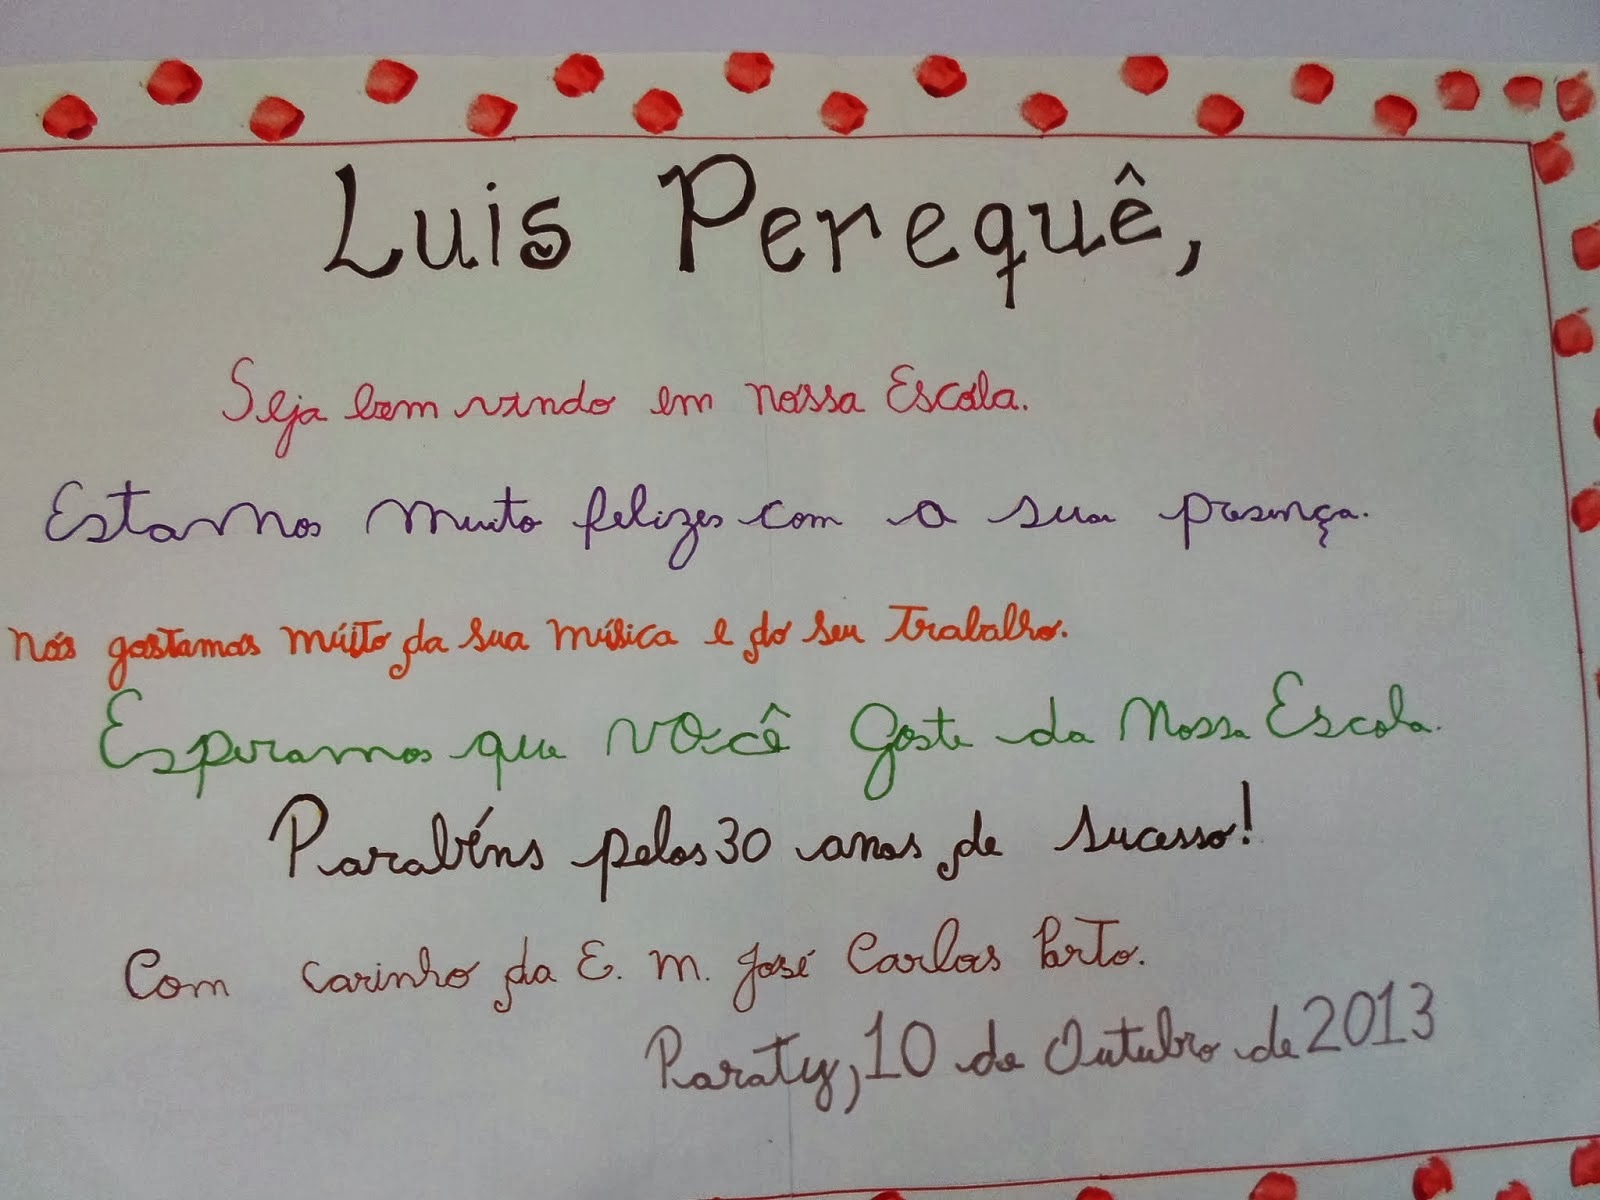 Luis Perequê,
Seja bem vindo em nossa Escola.
Estamos muito felizes com a sua presença.
Nós gostamos muito da sua música e do seu trabalho.
Esperamos que você goste da nossa Escola.
Parabéns pelos 30 anos de sucesso!
Com carinho da E. M. José Carlos Porto.
Paraty, 10 de Outubro de 2013